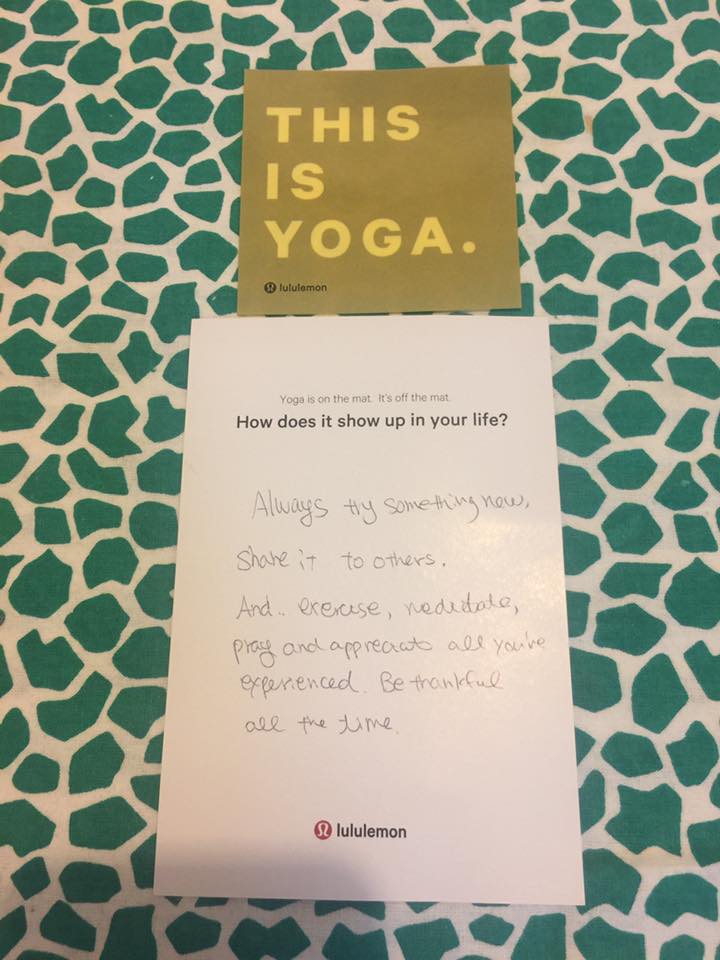 THIS
IS
YOGA.
lululemon
Yoga is on the mat. It's off the mat.
How does it show up in your life?
Always try something new,
Share it to others.
And.. exercise, meditate,
pray and appreciate all you've
experienced. Be thankful
all the time.
lululemon